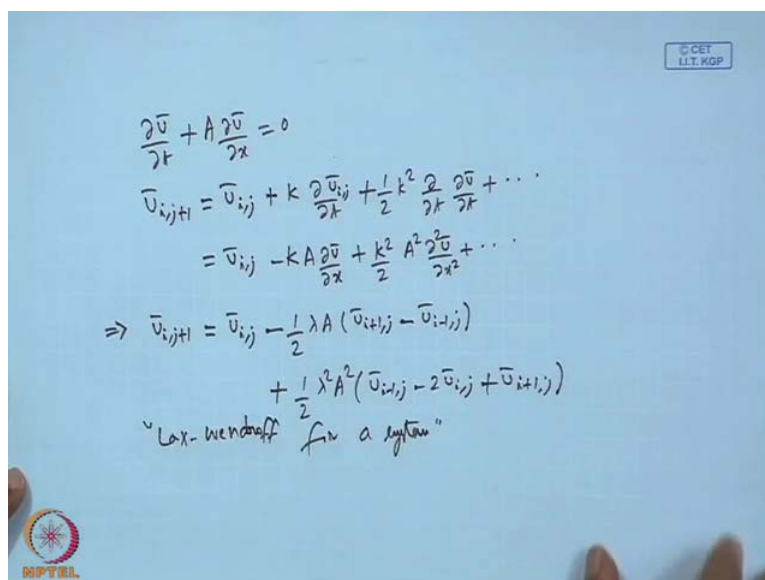 © CET
I.I.T. KGP
∂Ū/∂t + A ∂Ū/∂x = 0
Ū_{i,j+1} = Ū_{i,j} + k ∂Ū_{i,j}/∂t + 1/2 k² ∂/∂t ∂Ū/∂t + ...
= Ū_{i,j} - kA ∂Ū/∂x + k²/2 A² ∂²Ū/∂x² + ...
⇒ Ū_{i,j+1} = Ū_{i,j} - 1/2 λA (Ū_{i+1,j} - Ū_{i-1,j})
+ 1/2 λ²A² (Ū_{i-1,j} - 2Ū_{i,j} + Ū_{i+1,j})
"Lax-Wendroff for a system"
NPTEL